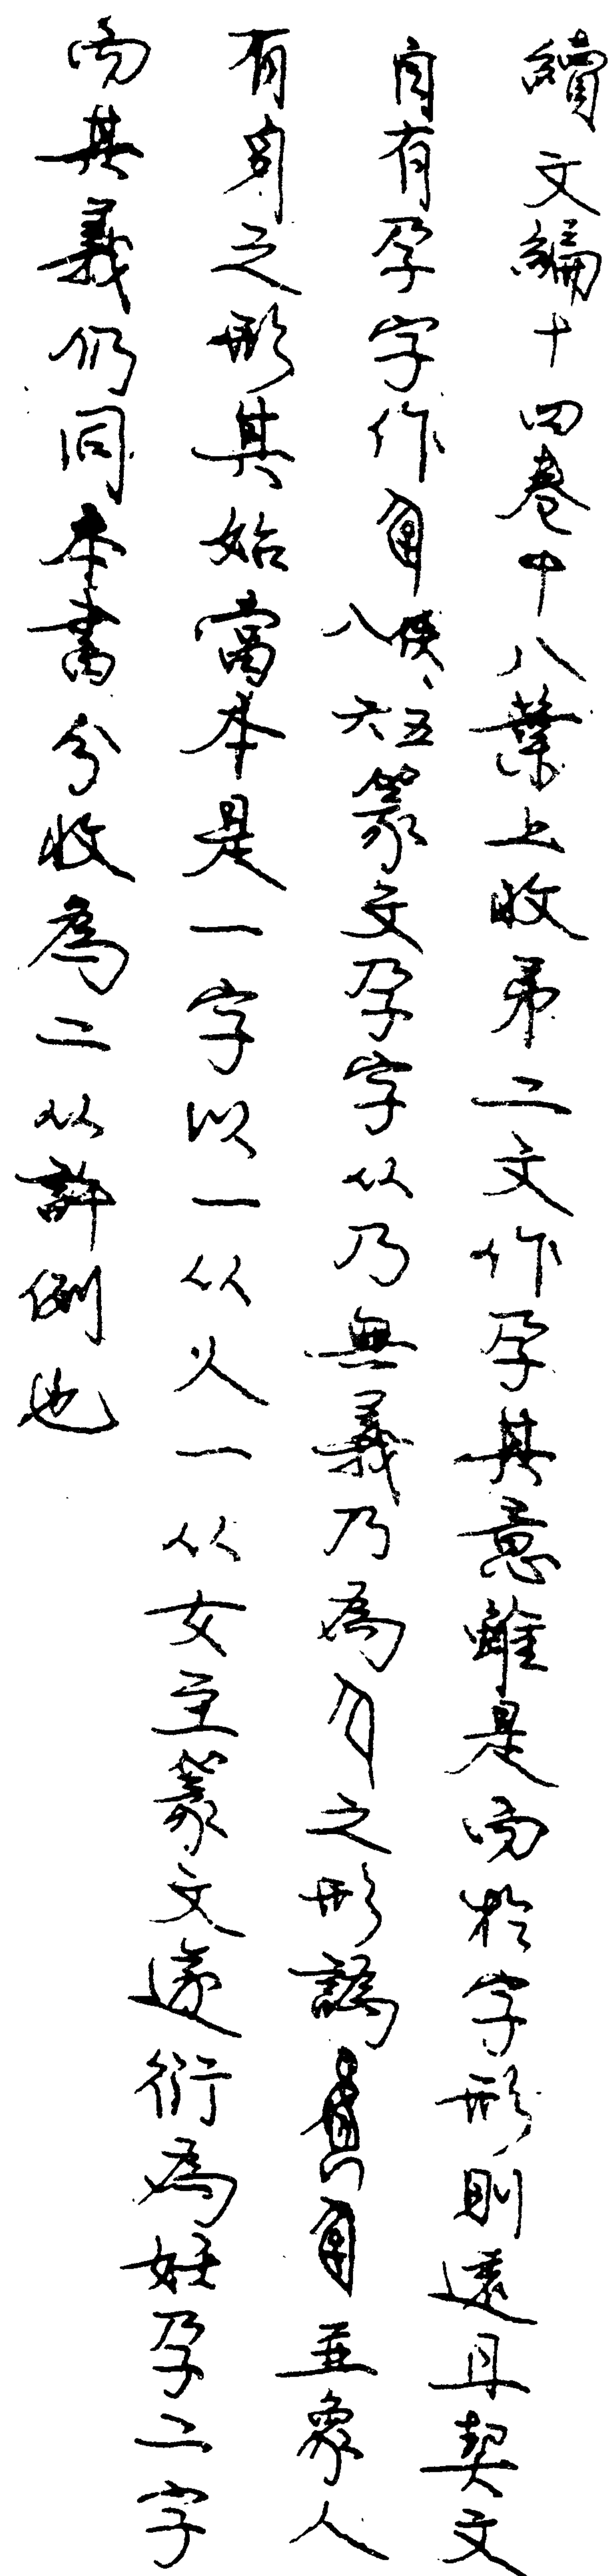 續文編十四卷十八葉上收弟二文作孕其意雖是而於字形則遠且契文
自有孕字作佚、五八六篆文孕字从乃無義乃為之形譌並象人
有身之形其始當本是一字以一从人一从女至篆文遂衍為妊孕二字
而其義仍同本書分收為二从許例也